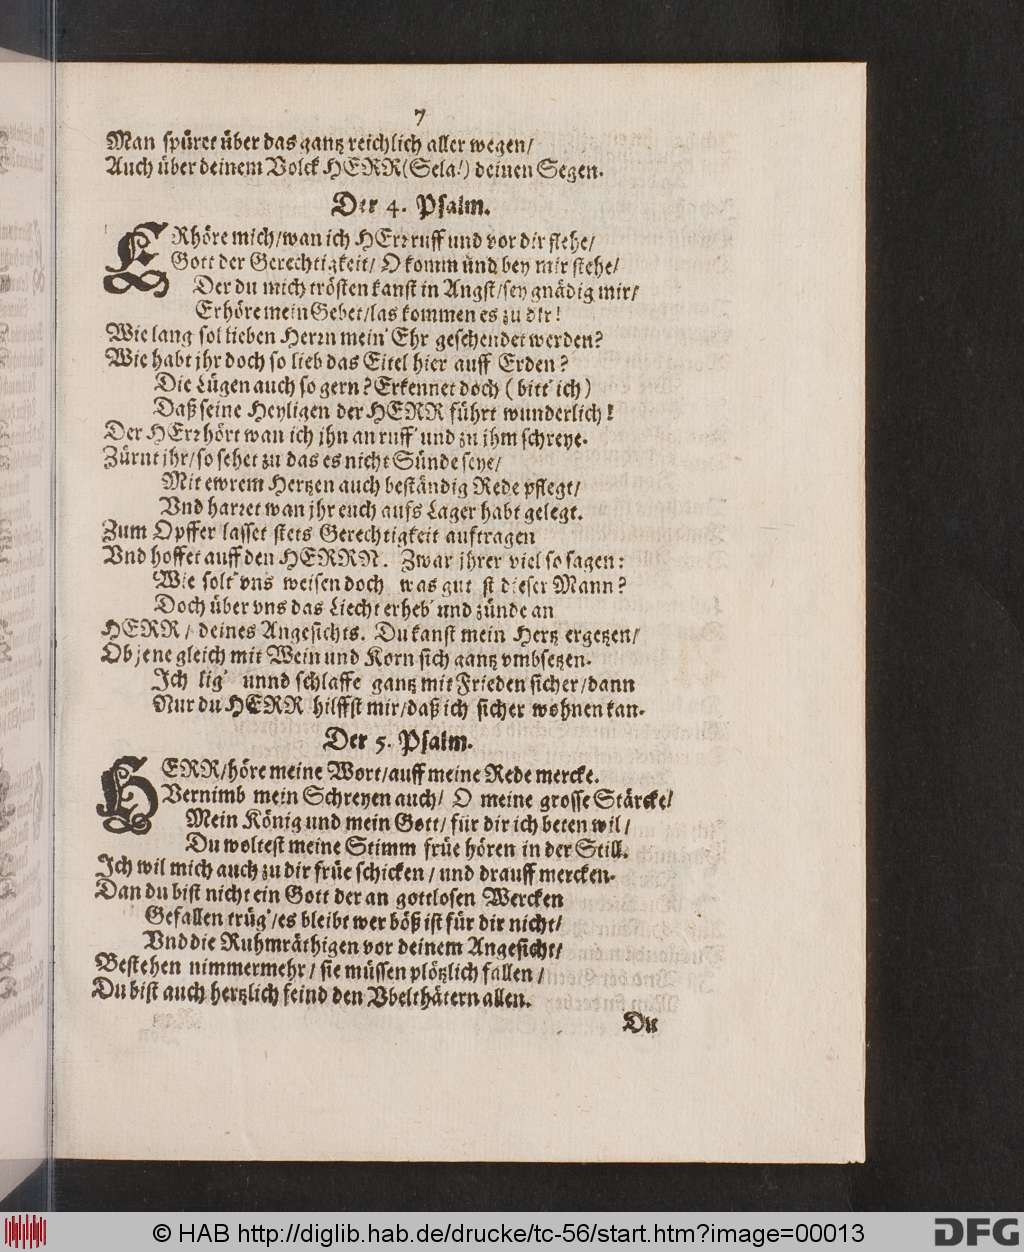 7
Man spüret über das gantz reichlich aller wegen/
Auch über deinem Volck HERR (Sela!) deinen Segen.
Der 4. Psalm.
ERhöre mich/wan ich HErr ruff und vor dir stehe/
Gott der Gerechtigkeit/ O komm und bey mir stehe/
Der du mich trösten kanst in Angst/sey gnädig mir/
Erhöre mein Gebet/las kommen es zu dir!
Wie lang sol lieben Herrn mein' Ehr geschendet werden?
Wie habt jhr doch so lieb das Eitel hier auff Erden?
Die Lügen auch so gern? Erkennet doch (bitt' ich)
Daß seine Heyligen der HERR führt wunderlich!
Der HErr hört wan ich jhn an ruff' und zu jhm schreye.
Zürnt jhr/so sehet zu das es nicht Sünde seye/
Mit ewrem Hertzen auch beständig Rede pflegt/
Vnd harret wan jhr euch aufs Lager habt gelegt.
Zum Opffer lasset stets Gerechtigkeit auftragen
Vnd hoffet auff den HERRN. Zwar jhrer viel so sagen:
Wie solt' vns weisen doch was gut st dieser Mann?
Doch über vns das Liecht erheb' und zünde an
HERR/ deines Angesichts. Du kanst mein Hertz ergetzen/
Ob jene gleich mit Wein und Korn sich gantz vmbsetzen.
Ich lig' unnd schlaffe gantz mit Frieden sicher/dann
Nur du HERR hilffst mir/daß ich sicher wohnen kan.
Der 5. Psalm.
HERR/höre meine Wort/auff meine Rede mercke.
Vernimb mein Schreyen auch/ O meine grosse Stärcke/
Mein König und mein Gott/ für dir ich beten wil/
Du woltest meine Stimm früe hören in der Still.
Ich wil mich auch zu dir früe schicken/ und drauff mercken.
Dan du bist nicht ein Gott der an gottlosen Wercken
Gefallen trüg'/es bleibt wer böß ist für dir nicht/
Vnd die Ruhmräthigen vor deinem Angesicht/
Bestehen nimmermehr/ sie müssen plötzlich fallen/
Du bist auch hertzlich feind den Vbelthätern allen.
Du
© HAB http://diglib.hab.de/drucke/tc-56/start.htm?image=00013
DFG